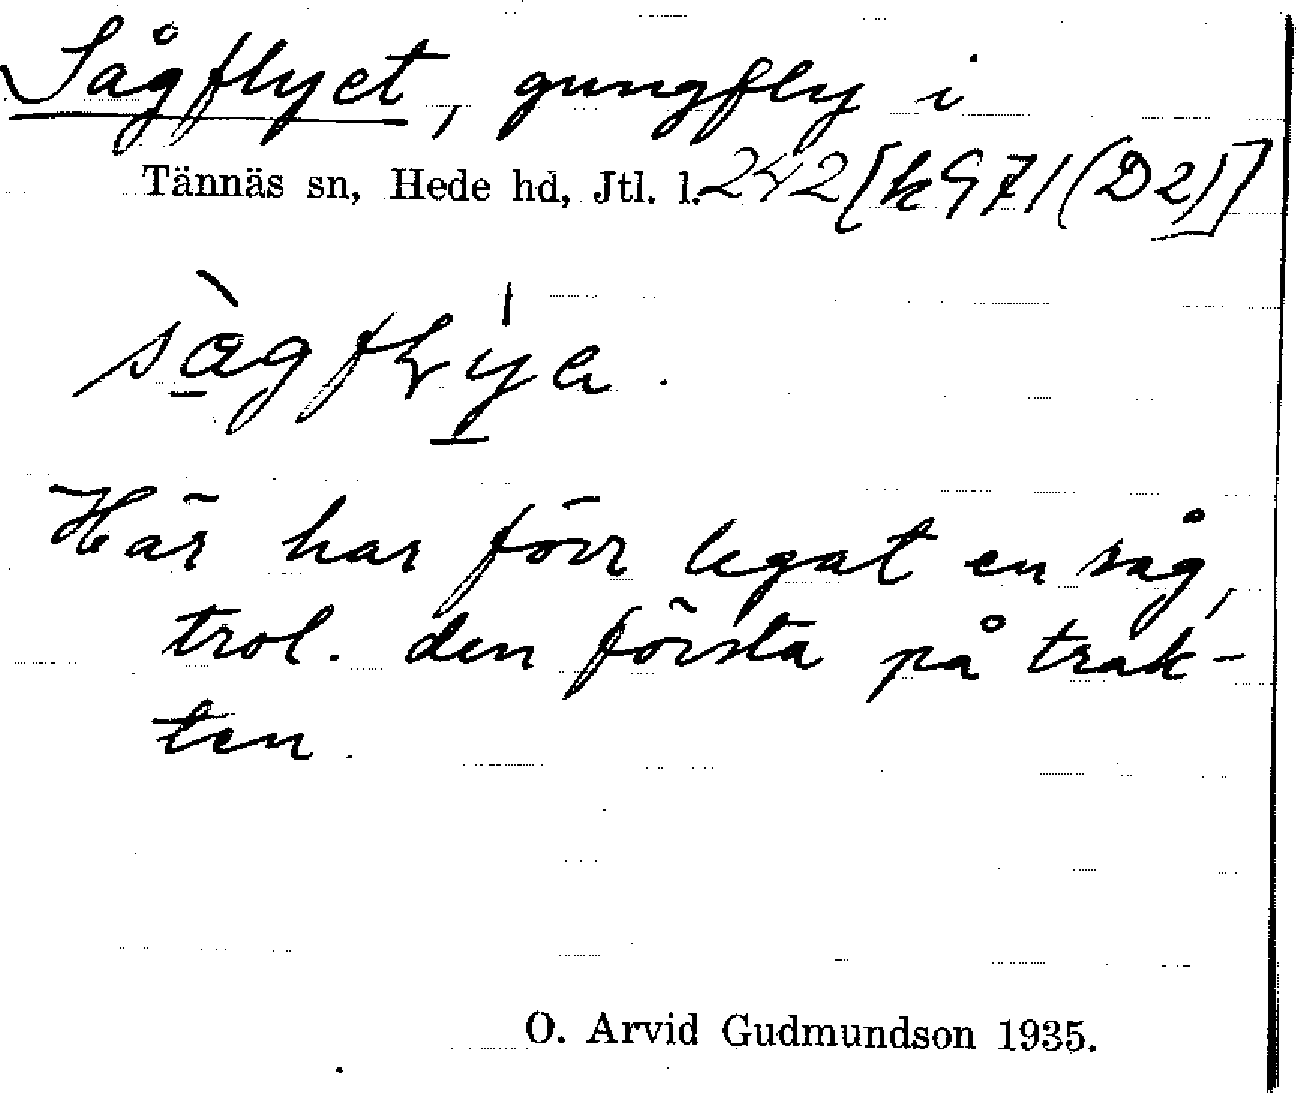 Sågflyet, gungfly i
Tännäs sn, Hede hd, Jtl. l. 242 [k971(D2)]
Här har förr legat en såg,
trol. den första på trak-
ten.
O. Arvid Gudmundson 1935.